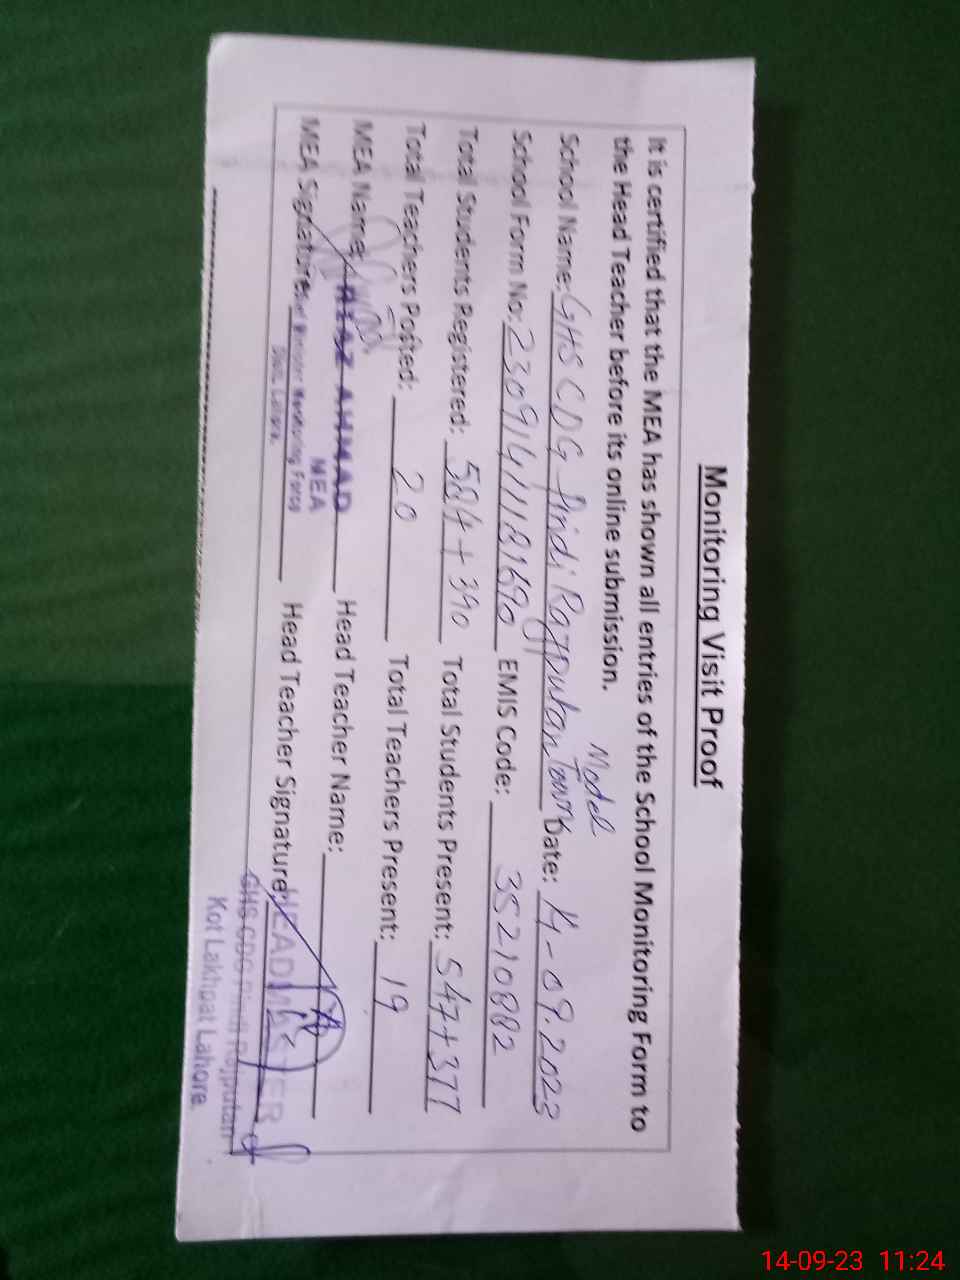 Monitoring Visit Proof
It is certified that the MEA has shown all entries of the School Monitoring Form to
the Head Teacher before its online submission.
School Name: GHS CDG Pindi Rajputan Model Town Date: 14-09.2023
School Form No: 230914111821690 EMIS Code: 35210882
Total Students Registered: 584+390 Total Students Present: 547+377
Total Teachers Posted: 20 Total Teachers Present: 19
MEA Name: RIAZ AHMAD Head Teacher Name:
MEA
MEA Signature: Monitoring Force Head Teacher Signature: HEADMASTER
Lahore.
GHS CDG Pindi Rajputan
Kot Lakhpat Lahore.
14-09-23 11:24